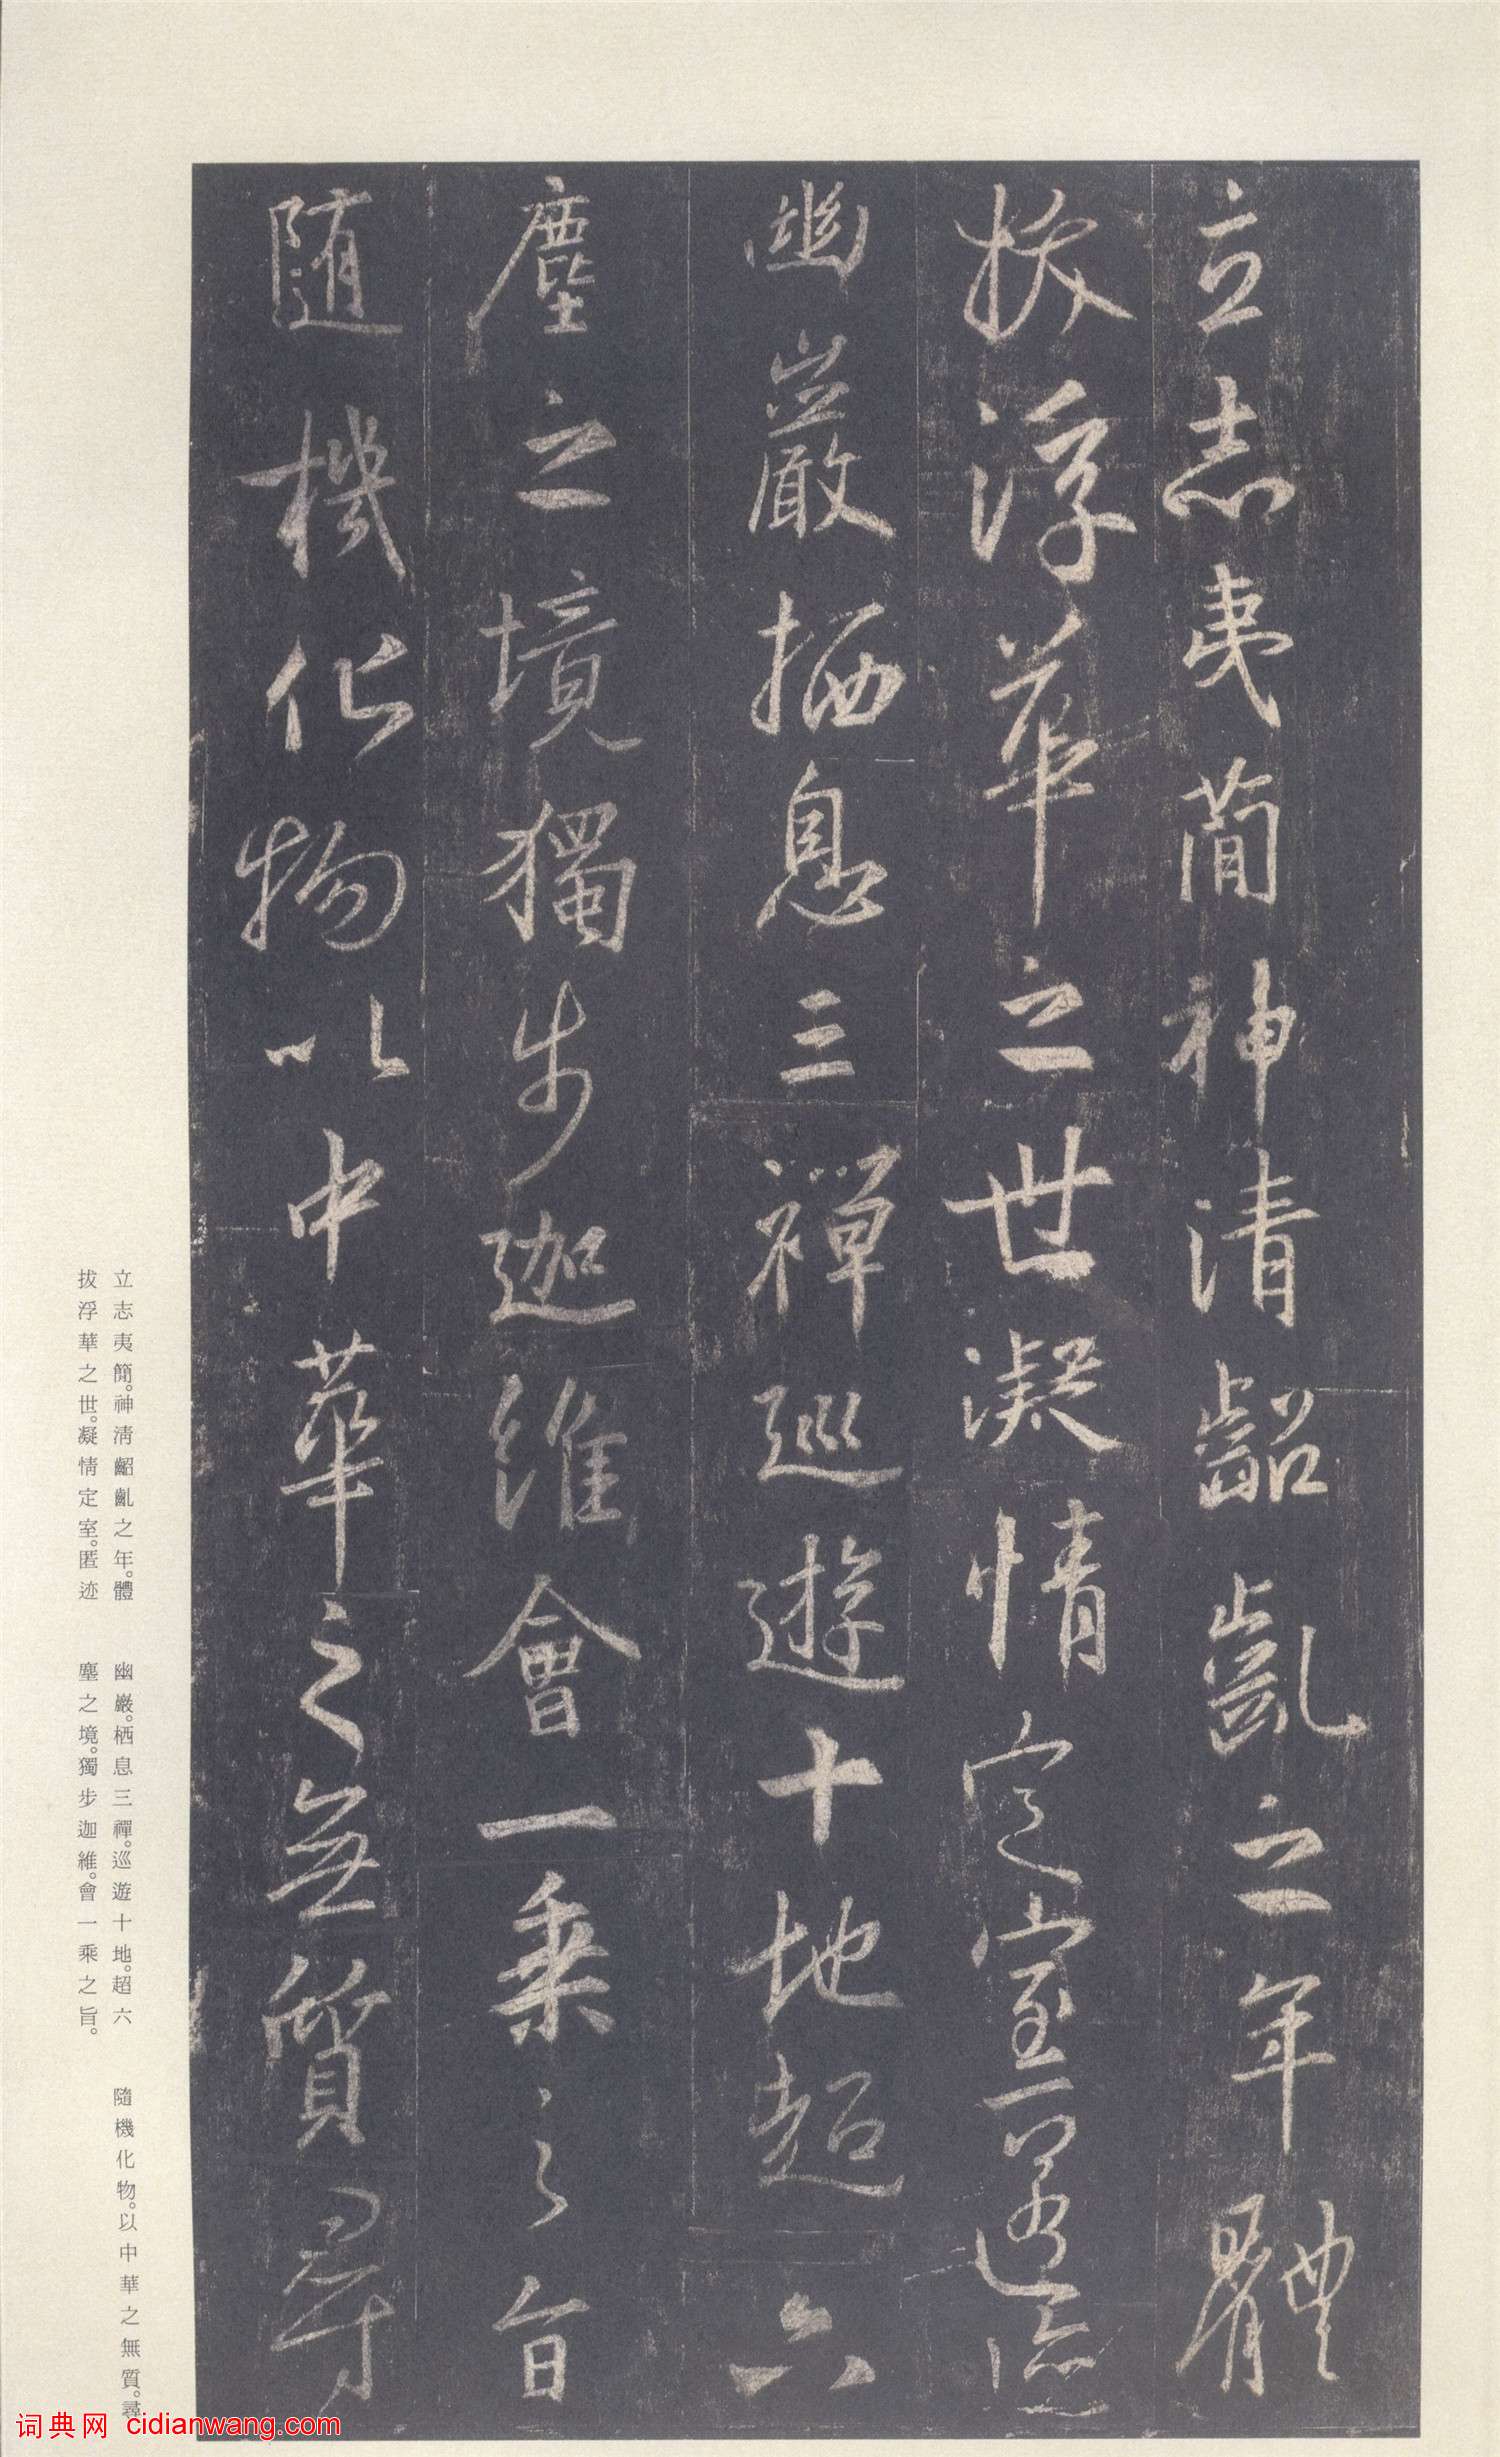 立志夷簡神清齠齓之年體
拔浮華之世凝情定室匿迹
幽巖栖息三禪巡遊十地超六
塵之境獨步迦維會一乘之旨
随機化物以中華之無質尋
立志夷簡。神清齠齓之年。體
拔浮華之世。凝情定室。匿迹
幽巖。栖息三禪。巡遊十地。超六
塵之境。獨步迦維。會一乘之旨。
隨機化物。以中華之無質。尋
词典网 cidianwang.com